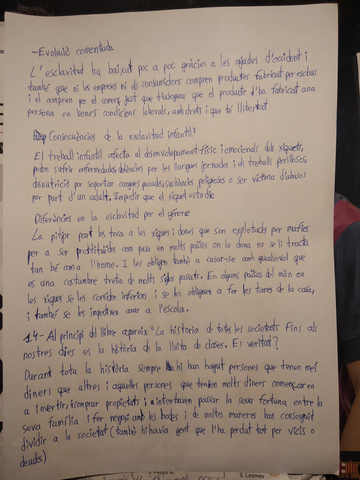 -Evolució comentada
L'esclavitud ha baixat poc a poc gràcies a les ajudes d'occident i
també que ni les empreses ni els consumidors compren productes fabricat per esclaus
i el compren per el comerç just que t'assegura que el producte d'ha fabricat una
persona en bones condicions laborals, amb drets i que té llibertat
Consecuències de la esclavitud infantil?
El treball infantil afecta al desenvolupament físic i emocional dels xiquets,
poden sofrir enfermedades per les llargues jornades i els treballs perillosos,
desnutrició per soportar cargues pesades, substàncies perilloses o ser víctima d'abusos
per part d'un adult. Impedir que el xiquet estudie
Diferències en la esclavitud per el gènere
La pitjor part les toca a les xiquetes i dones que son explotades per mafies
per a ser prostituides com pasa en molts països on la dona no se li tracta
tan bé com a l'home. I les obliguen també a casar-se amb qualsevol que
es una costumbre treta de molts sigles pasats. En alguns països del món en
les xiques se les considera inferiors i se les obliguen a fer les tares de la casa,
i també se les impedeix anar a l'escola.
14- Al principi del llibre apareix "La historia de totes les societats Fins als
nostres dies es la història de la lluita de clases. Es veritat?
Durant tota la història sempre hi han hagut persones que tenen més
diners que altres i aquelles persones que tenien molts diners començaren
a invertir, comprar propietats i intentaven passar la seva fortuna entre la
seva família i fer negoci amb les bodes i de moltes maneres han conseguit
dividir a la societat (també hi havia gent que l'ha perdut tot per vicis o
deudes)